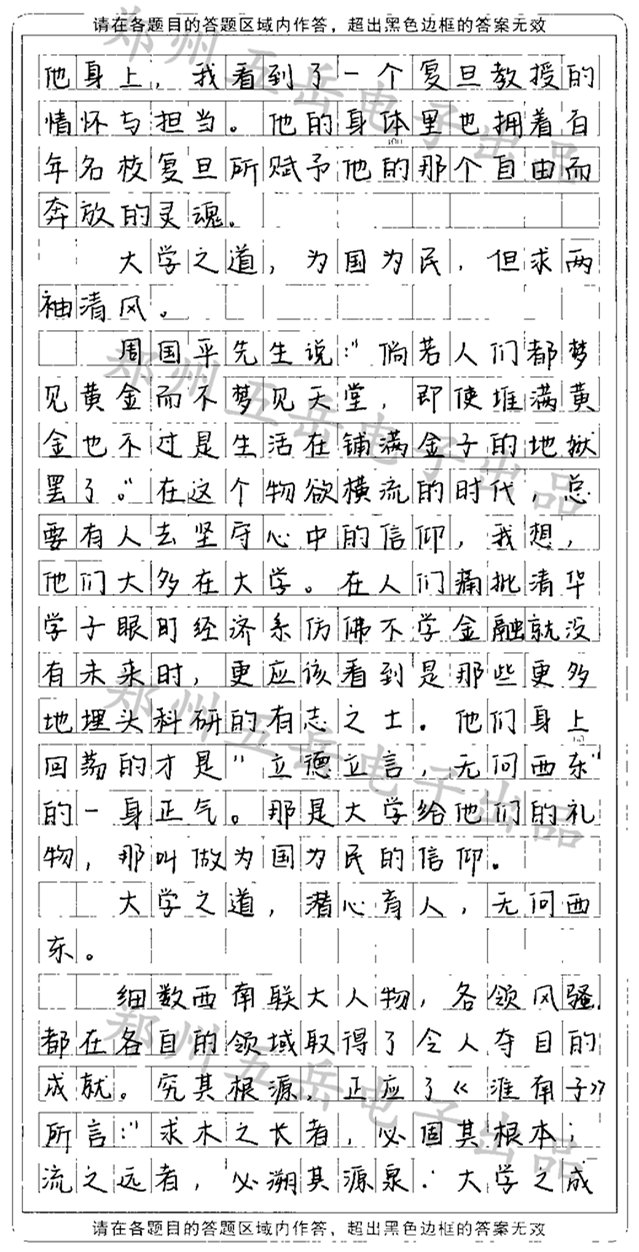 请在各题目的答题区域内作答，超出黑色边框的答案无效
他身上，我看到了一个复旦教授的
情怀与担当。他的身体里也拥着百
年名校复旦所赋予他的那个自由而
奔放的灵魂。
大学之道，为国为民，但求两
袖清风。
周国平先生说："倘若人们都梦
见黄金而不梦见天堂，即使堆满黄
金也不过是生活在铺满金子的地狱
罢了。"在这个物欲横流的时代，总
要有人去坚守心中的信仰，我想，
他们大多在大学。在人们痛批清华
学子眼盯经济系仿佛不学金融就没
有未来时，更应该看到是那些更多
地埋头科研的有志之士。他们身上
回荡的才是"立德立言，无问西东"
的一身正气。那是大学给他们的礼
物，那叫做为国为民的信仰。
大学之道，潜心育人，无问西
东。
细数西南联大人物，各领风骚，
都在各自的领域取得了令人夺目的
成就。究其根源，正应了《淮南子》
所言："求木之长者，必固其根本；
流之远者，必溯其源泉."大学之成
请在各题目的答题区域内作答，超出黑色边框的答案无效
郑州五岳电子出品
郑州五岳电子出品
郑州五岳电子出品
郑州五岳电子出品